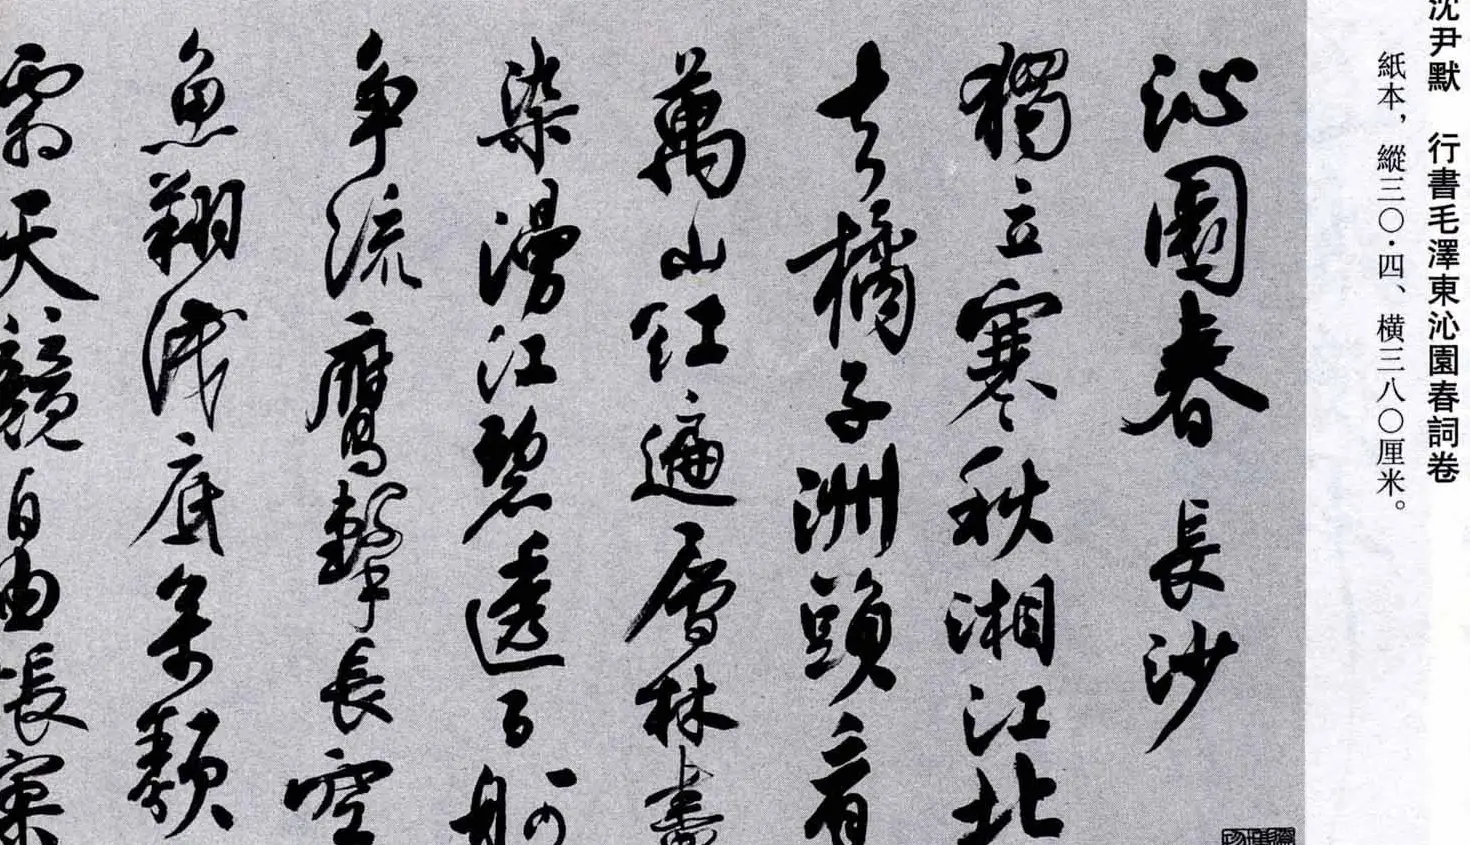 沈尹默　行書毛澤東沁園春詞卷
紙本，縱三〇·四、橫三八〇厘米。
沁園春　長沙
獨立寒秋湘江北
去橘子洲頭看
萬山紅遍層林盡
染漫江碧透百舸
爭流鷹擊長空
魚翔淺底萬類
霜天競自由悵寥